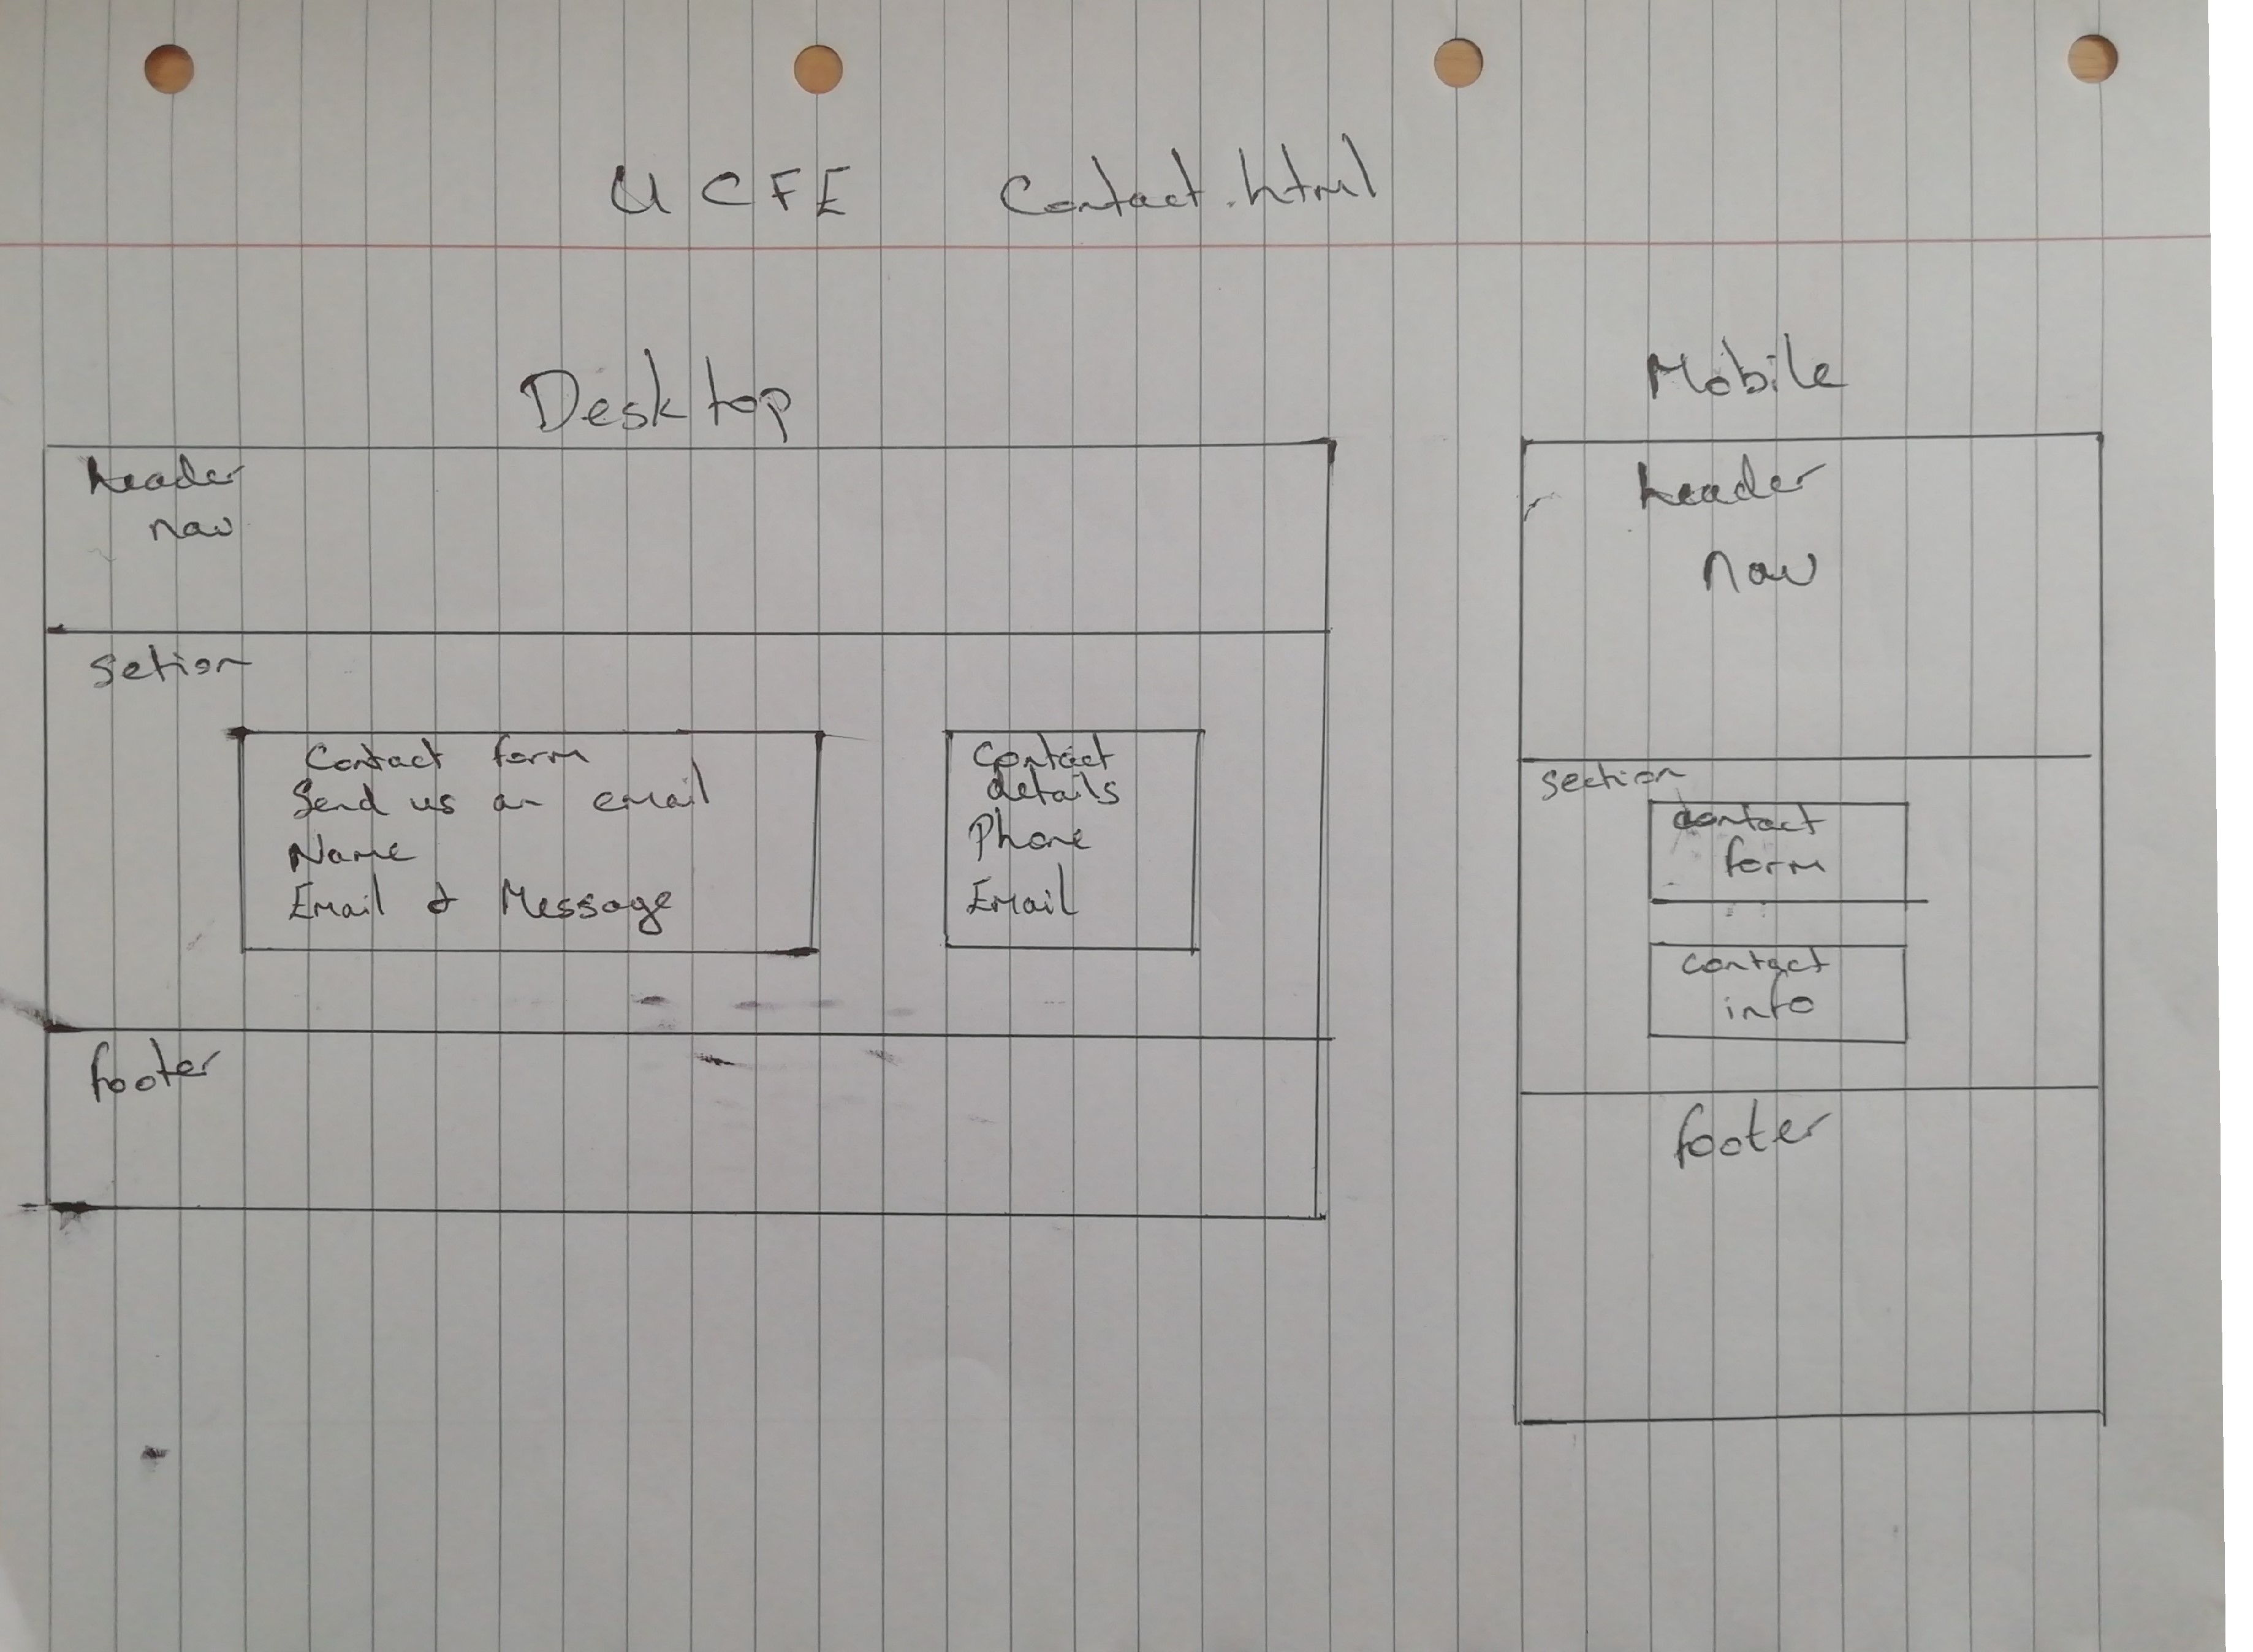 UCFE Contact.html
Desktop
header
nav
setion
Contact form
Send us an email
Name
Email & Message
Contact
details
Phone
Email
footer
Mobile
header
nav
section
contact
form
contact
info
footer